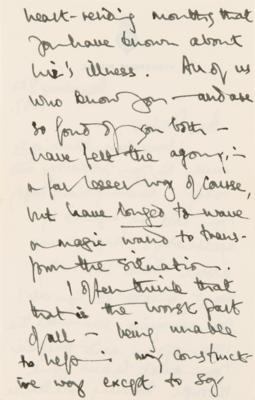 heart-rending months that
you have known about
's illness. All of us
who know you — and are
so fond of you both —
have felt the agony, in
a far lesser way of course,
but have longed to wave
a magic wand to trans-
form the situation.
I often think that
that is the worst part
of all — being unable
to help in any construct-
ive way except to say